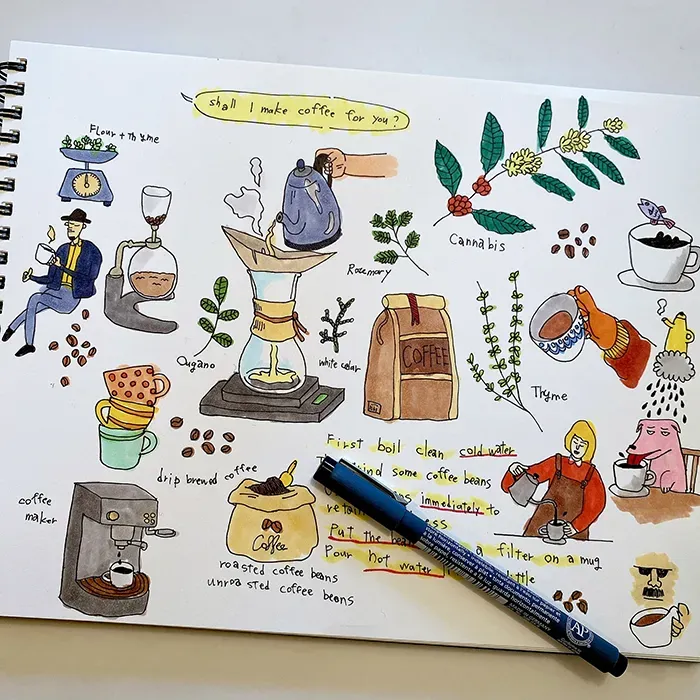 shall I make coffee for you?
Flour + Thyme
Cannabis
Rosemary
Ougano
white cedar
COFFEE
Thyme
First boil clean cold water
grind some coffee beans
immediately to
Put the a filter on a mug
Pour hot water little
drip brewed coffee
coffee
maker
Coffee
roasted coffee beans
unroasted coffee beans
AP